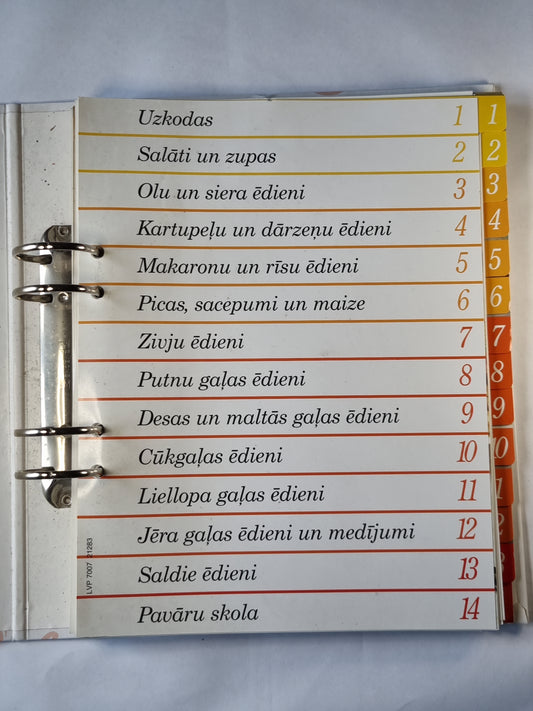 Uzkodas 1
Salāti un zupas 2
Olu un siera ēdieni 3
Kartupeļu un dārzeņu ēdieni 4
Makaronu un rīsu ēdieni 5
Picas, sacepumi un maize 6
Zivju ēdieni 7
Putnu gaļas ēdieni 8
Desas un maltās gaļas ēdieni 9
Cūkgaļas ēdieni 10
Liellopa gaļas ēdieni 11
Jēra gaļas ēdieni un medījumi 12
Saldie ēdieni 13
Pavāru skola 14
LVP 7007 21283
1
2
3
4
5
6
7
8
9
10
1
2